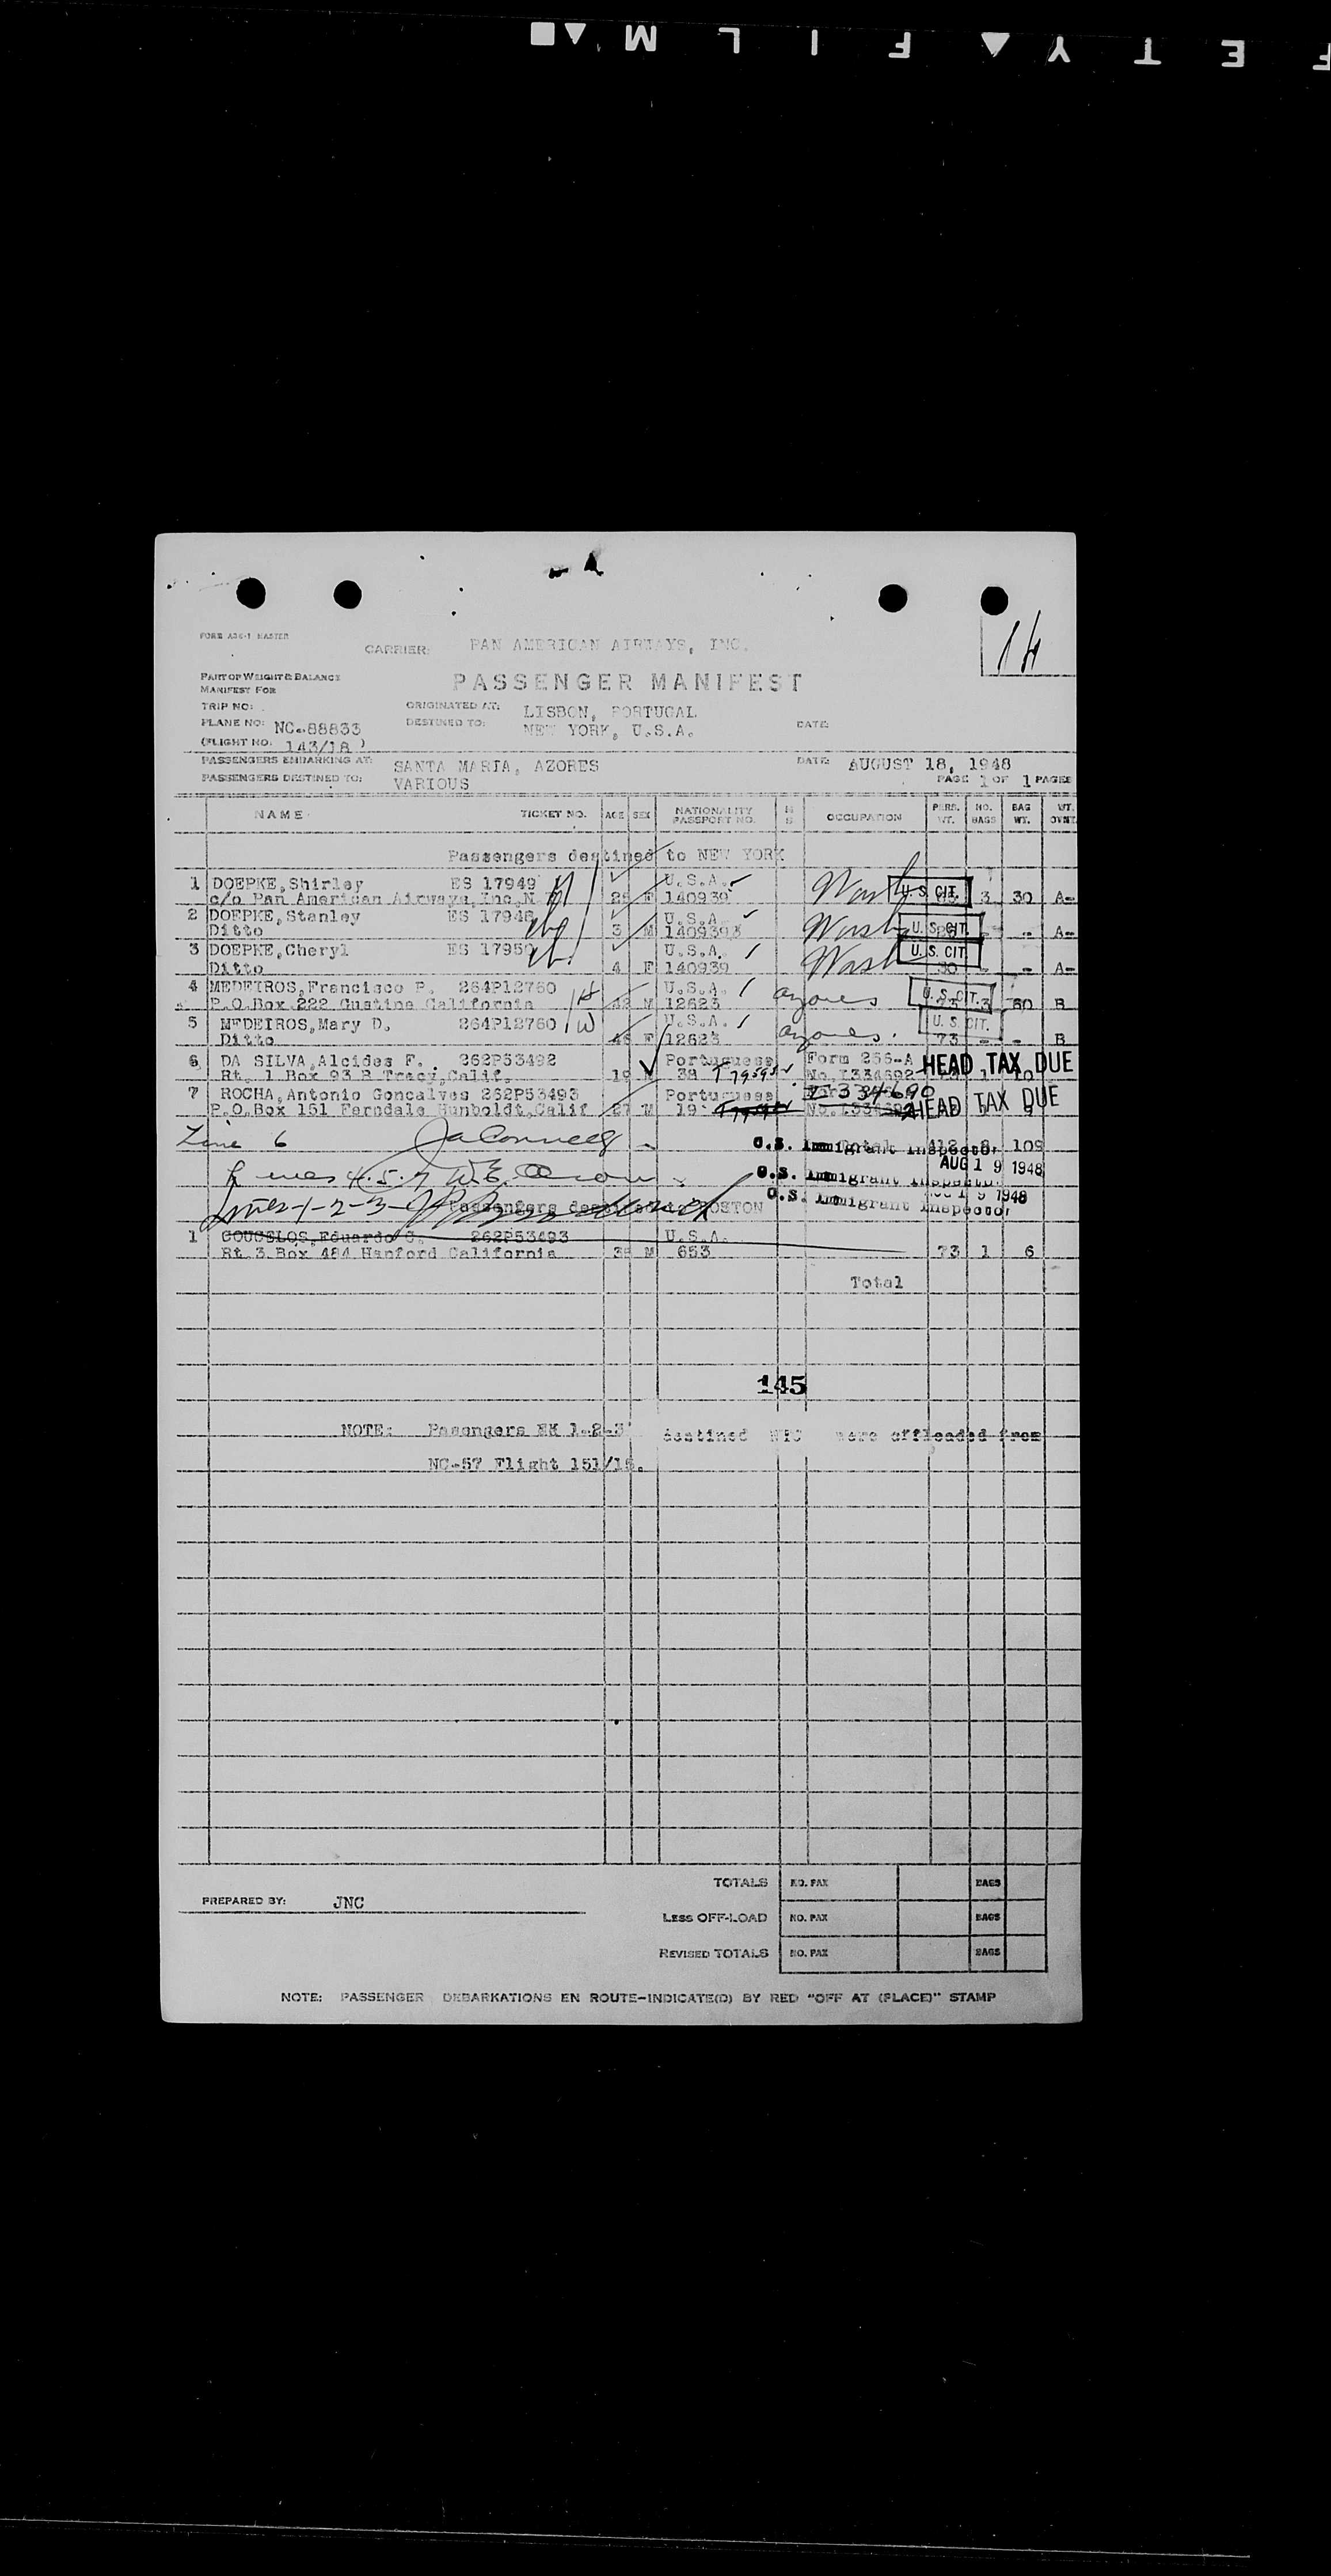 FETY▲FILM▲■
14
FORM A36-1 MASTER
CARRIER: PAN AMERICAN AIRWAYS, INC.
PART OF WEIGHT & BALANCE
MANIFEST FOR
PASSENGER MANIFEST
TRIP NO:
ORIGINATED AT: LISBON, PORTUGAL
PLANE NO: NC-88833
DESTINED TO: NEW YORK, U.S.A.
DATE:
(FLIGHT NO: 143/18 )
PASSENGERS EMBARKING AT: SANTA MARIA, AZORES
DATE: AUGUST 18, 1948
PASSENGERS DESTINED TO: VARIOUS
PAGE 1 OF 1 PAGES
NAME TICKET NO. AGE SEX NATIONALITY PASSPORT NO. OCCUPATION PERS. WT. NO. BAGS BAG WT. WT. OVWT.
Passengers destined to NEW YORK
1 DOEPKE, Shirley ES 17949 U.S.A. Wash U.S. CIT.
c/o Pan American Airways, Inc. N.Y. F 140939 3 30 A-
2 DOEPKE, Stanley ES 17948 U.S.A. Wash U.S. CIT.
Ditto 3 M 140939 - - A-
3 DOEPKE, Cheryl ES 17950 U.S.A. Wash U.S. CIT.
Ditto 4 F 140939 - - A-
4 MEDEIROS, Francisco P. 264P12760 U.S.A. azores U.S. CIT.
P.O.Box 222 Gustine California M 12623 3 60 B
5 MEDEIROS, Mary D. 264P12760 W U.S.A. azores. U.S. CIT.
Ditto F 12623 73 - - B
6 DA SILVA, Alcides F. 262P53492 Portuguese Form 256-A HEAD TAX DUE
Rt. 1 Box 93 B Tracy, Calif. 19 M 38 No. I334692
7 ROCHA, Antonio Goncalves 262P53493 Portuguese I-334690 HEAD TAX DUE
P.O.Box 151 Ferndale Humboldt, Calif 27 M 19
Line 6
U.S. Immigrant Inspector Total 412 8 109
AUG 19 1948
Lines 4.5.7
U.S. Immigrant Inspector
AUG 19 1948
Lines-1-2-3-
U.S. Immigrant Inspector
Passengers destined to BOSTON
1 GOUCELOS, Eduardo C. 262P53493 U.S.A.
Rt. 3 Box 484 Hanford California 38 M 653 73 1 6
Total
145
NOTE: Pasengers EK 1-2-3 destined NYC were offloaded from
NC-57 Flight 151/18.
TOTALS NO. PAX BAGS
PREPARED BY: JNC
LESS OFF-LOAD NO. PAX BAGS
REVISED TOTALS NO. PAX BAGS
NOTE: PASSENGER DEBARKATIONS EN ROUTE-INDICATE(D) BY RED "OFF AT (PLACE)" STAMP